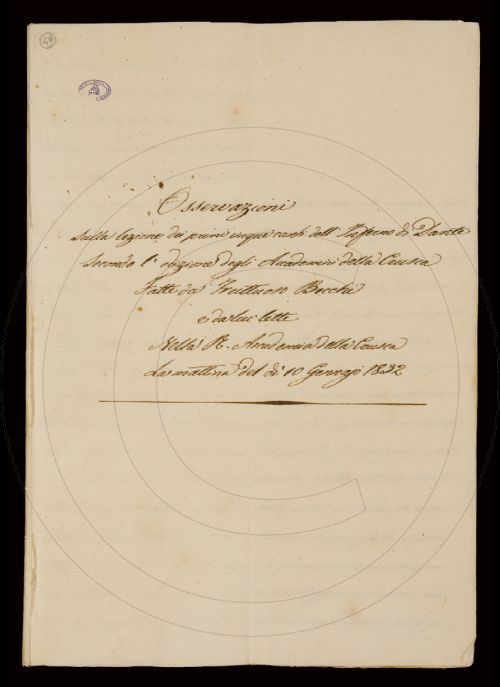 Osservazioni
sulla lezione dei primi cinque canti dell' Inferno di Dante
secondo l' edizione degli Accademici della Crusca
Fatte da Fruttuoso Becchi
e da lui lette
Nella R. Accademia della Crusca
La mattina del dì 10 Gennajo 1832